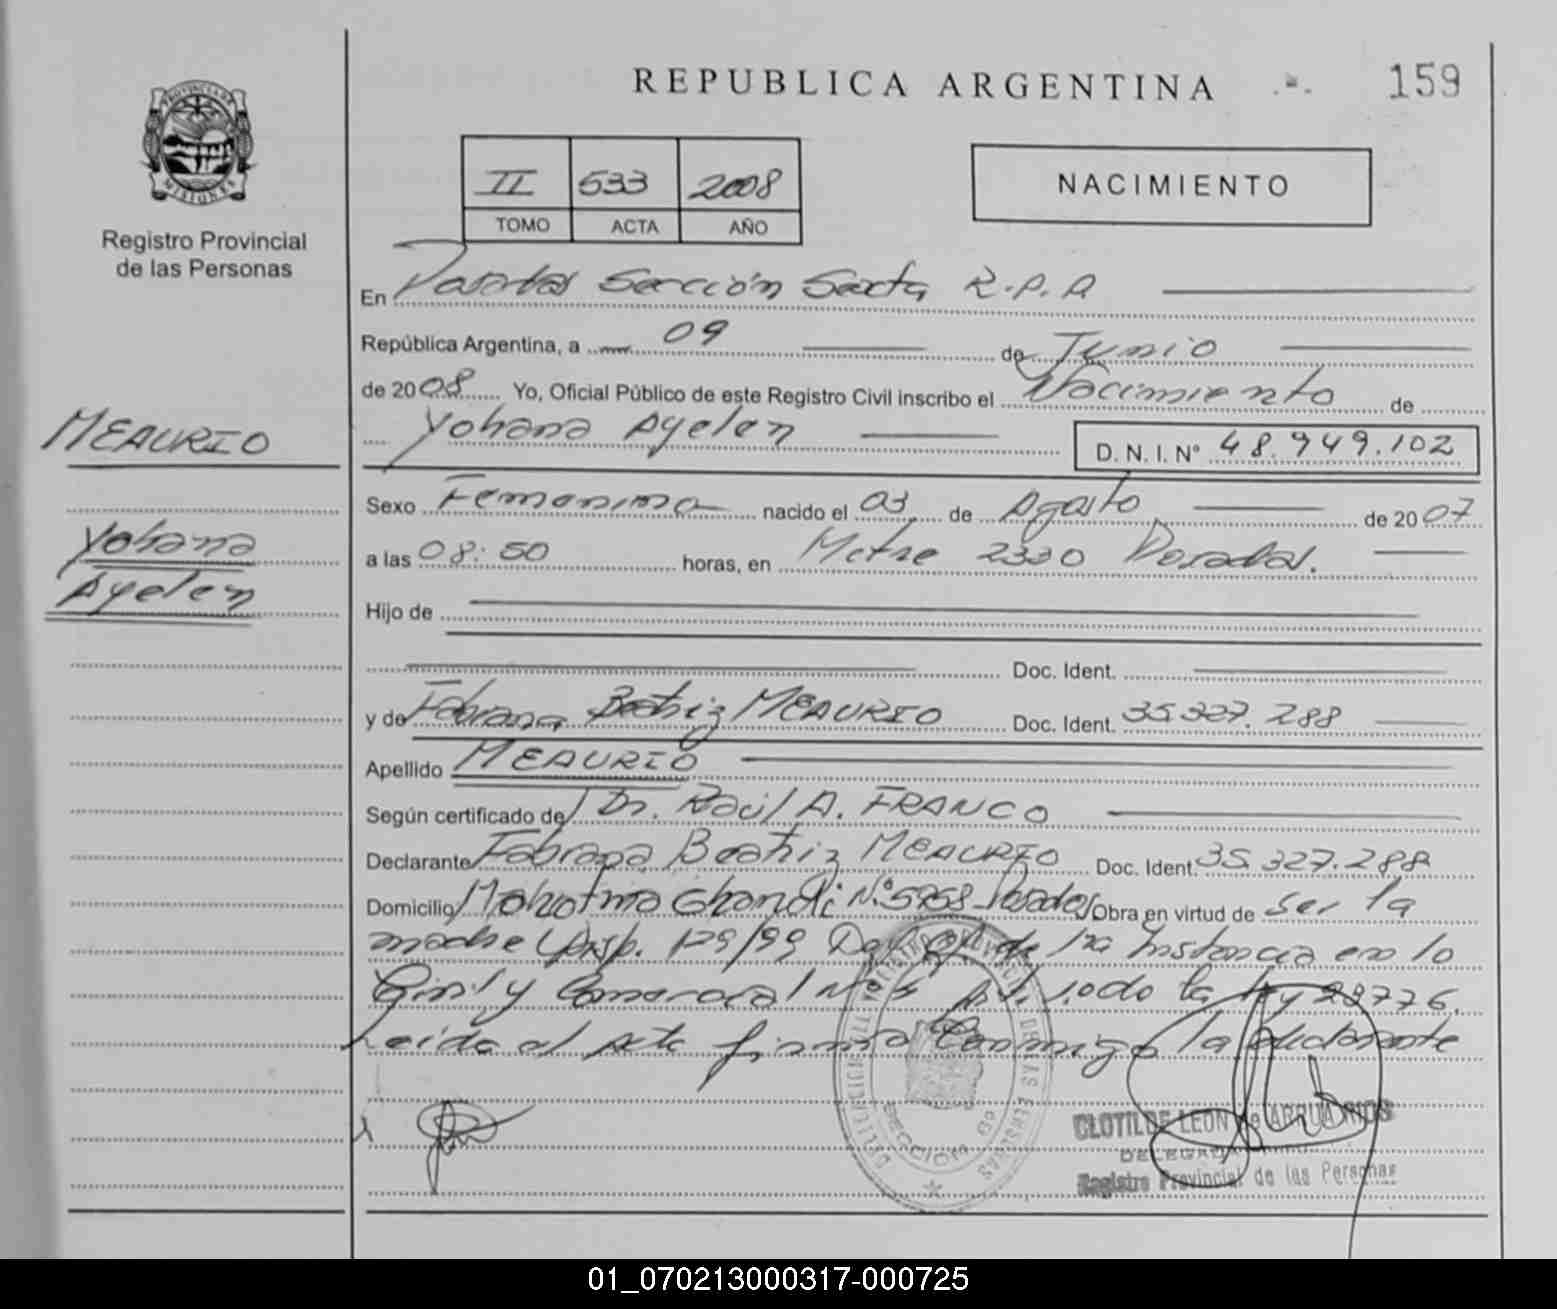 REPUBLICA ARGENTINA
159
PROVINCIA DE MISIONES
Registro Provincial
de las Personas
II 533 2008
TOMO ACTA AÑO
NACIMIENTO
En Posadas Sección Sexta R.P.A
República Argentina, a 09 de Junio
de 2008 Yo, Oficial Público de este Registro Civil inscribo el Nacimiento de
Yohana Ayelen D. N. I. Nº 48.949.102
MEAURIO
Yohana
Ayelen
Sexo Femenino nacido el 03 de Agosto de 2007
a las 08:50 horas, en Mitre 2330 Posadas.
Hijo de
Doc. Ident.
y de Fabiana Beatriz MEAURIO Doc. Ident. 35.327.288
Apellido MEAURIO
Según certificado de Dr. Raúl A. FRANCO
Declarante Fabiana Beatriz MEAURIO Doc. Ident. 35.327.288
Domicilio Mahatma Ghandi Nº 5768 Posadas Obra en virtud de ser la
madre y Disp. 129/99 de 1ra Instancia en lo
Civil y Comercial Nº la ley 23776.
Leída el Acta firma Conmigo la declarante
SECCION 6º
CLOTILDE LEON de ARRUA RIOS
DELEGADA
Registro Provincial de las Personas
01_070213000317-000725